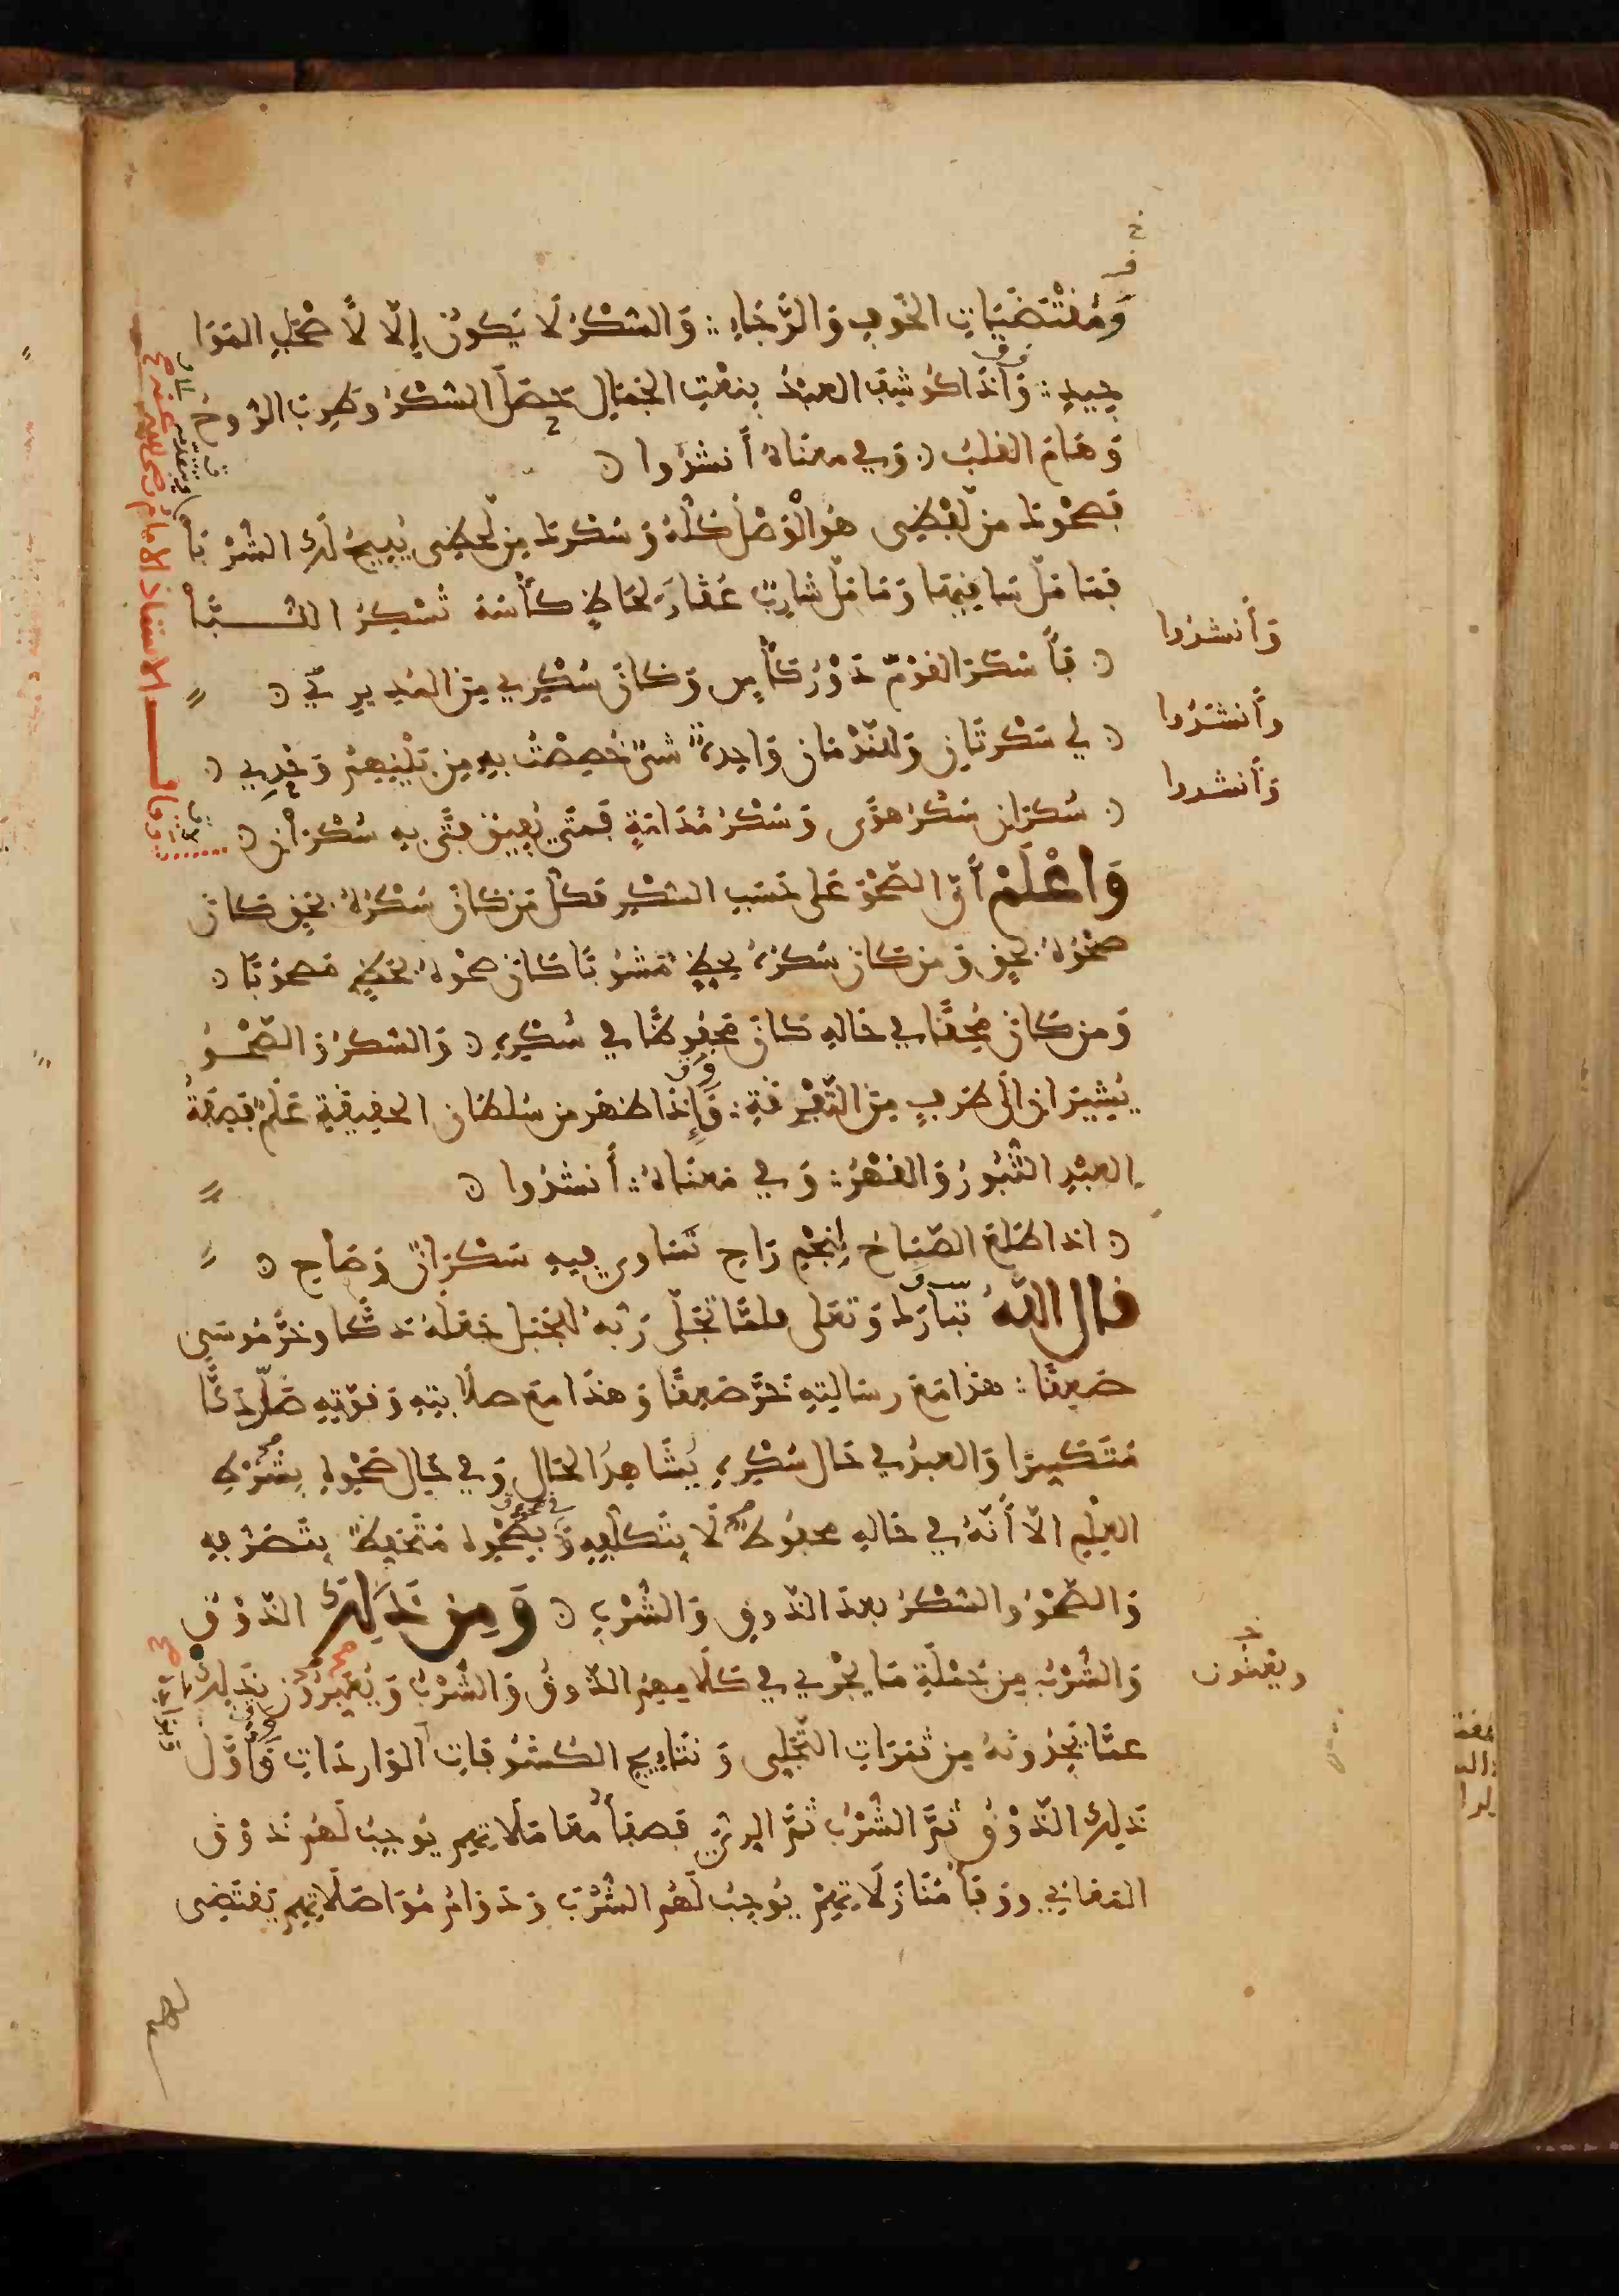 وَمُقْتَضَيَاتِ الخَوفِ وَالرَّجَاءِ وَالسُّكْرُ لَا يَكونُ إلّا لأَصْحَابِ المَوَا
جِيدِ وَإذا كُوشِفَ العَبْدُ بنعْتِ الجَمَالِ حَصَلَ السُّكْرُ وَطَرِبَ الرُّوحُ
وَهَامَ القلبُ وَفي معنَاهُ أَنشَدُوا
فصَحْوُكَ من لَفْظِي هُوَ الْوَصْلُ كُلُّهُ وَسُكْرُكَ مِن لَحْظِي يُبِيحُ لَكَ الشُّرْبَا
فمَا مَلَّ سَاقِيهَا وَمَا مَلَّ شَارِبٌ عُقَارَ لحَاظٍ كَأْسُهُ تُسْكِرُ اللُّبَّا
وَأَنشدُوا
فَأَسْكَرَ القَوْمَ دَوْرُ كَأْسٍ وَكَانَ سُكْرِي مِنَ المُدِيرِ
وَأَنشَدُوا
لِي سَكْرَتَانِ وَللنَّدْمَانِ وَاحِدَةٌ شَيْءٌ خُصِصْتُ بِهِ مِن بَيْنِهِمْ وَحْدِي
وَأَنشدوا
سُكرَانِ سُكْرُ هَوًى وَسُكْرُ مُدَامَةٍ فَمَتَى يُفِيقُ فَتًى بِهِ سُكْرَانِ
وَاعْلَمْ أَنَّ الصَّحْوَ عَلى حَسَبِ السُّكْرِ فَكلُّ مَن كَانَ سُكْرُهُ بِحَقٍّ كَانَ
صَحْوُهُ بِحَقٍّ وَمَن كَانَ سُكرُهُ بِحَظٍّ مَشُوبًا كَانَ صَحْوُهُ بِحَظٍّ مَصحُوبًا
وَمَن كَانَ مُحِقًّا في حَالِهِ كَانَ مَحفُوظًا في سُكْرِهِ وَالسُّكرُ وَالصَّحْوُ
يُشِيرَانِ إلَى طَرَفٍ مِنَ التَّفْرِقَةِ وَإِذَا ظهَر مِن سُلطَانِ الحقِيقَةِ عَلَمٌ فَصِفَةُ
العَبْدِ الثُّبُورُ وَالقَهْرُ وَفي مَعنَاهُ أَنشَدُوا
اذا طَلَعَ الصَّبَاحُ لِنَجْمِ رَاحٍ تَسَاوَى فِيهِ سَكْرَانٌ وَصَاحِ
قال اللَّهُ تبَارَكَ وَتَعَلى فلمَّا تَجَلَّى رَبُّهُ لِلجَبَلِ جَعَلَهُ دَكًّا وخَرَّ مُوسَى
صَعِقًا هذا مَعَ رِسَالتِهِ خَرَّ صَعِقًا وَهذَا مَعَ صلَابتِهِ وَقوَّتِهِ صَارَ دَكًّا
مُتَكَسِّرًا وَالعَبدُ في حَالِ سُكْرِهِ يُشَاهِدُ الحَالَ وَفي حَالِ صَحْوِهِ بِشَرْطِ
العِلْمِ الّا أَنَّهُ في حَالِهِ محفُوظٌ لَا بِتَكَلُّفِهِ وَبِصَحْوِهِ مُتَحَفِّظٌ بِتَصَرُّفِهِ
وَالصَّحْوُ وَالسُّكرُ بعدَ الذَّوقِ وَالشُّرْبِ وَمِن ذَلِكَ الذَّوْقُ
وَالشُّرْبُ مِن جُمْلَةِ مَا يَجْرِي في كَلَامِهِمُ الذَّوقُ وَالشُّرْبُ وَيُعَبِّرُونَ بِذَلِكَ
ويعْنون
عمَّا يَجِدُونَهُ مِن ثمَرَاتِ التَّجَلِّي وَنتَايِجِ الكُشُوفَاتِ الوَارِدَاتِ وَأَوَّلُ
ذَلِكَ الذَّوْقُ ثمَّ الشُّرْبُ ثُمَّ الرِّيُّ فصفَأُ مُعَامَلَاتِهِم يُوجِبُ لَهُم ذَوْقَ
المَعَانِي ووفَأُ مُنَازَلَاتِهِمْ يُوجِبُ لَهُمُ الشُّرْبَ وَدَوَامُ مُوَاصَلَاتِهِم يَقتَضِي
وقال الاستاذ الامام رضى الله عنه